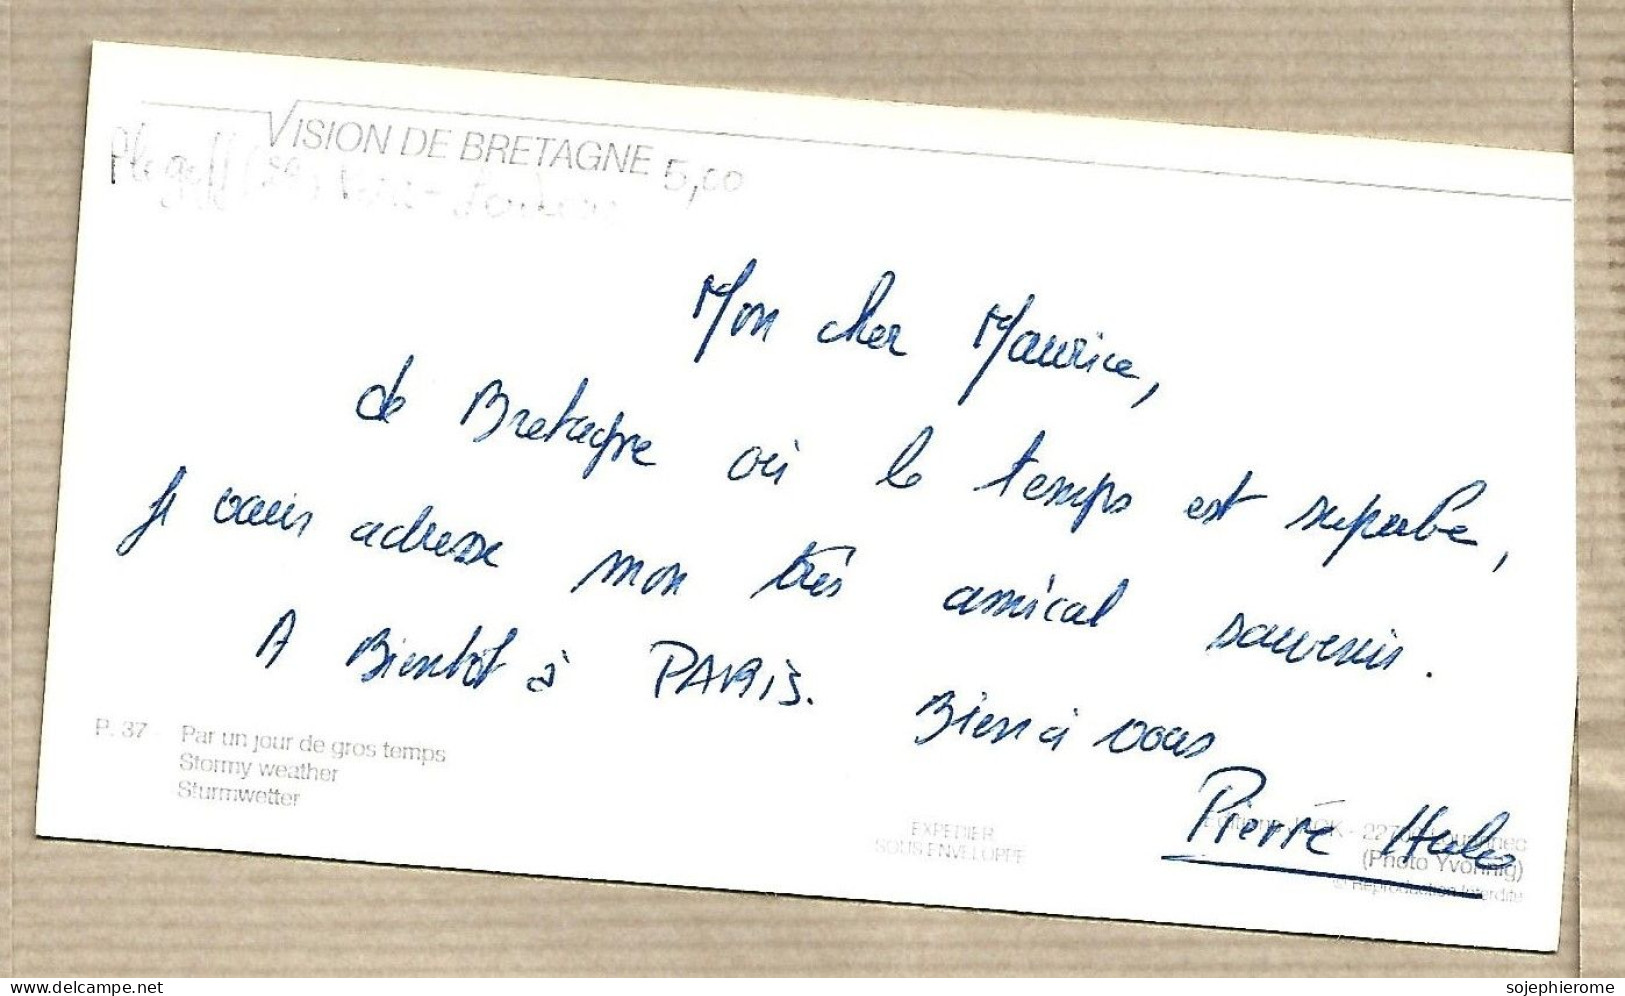 VISION DE BRETAGNE 5,00
Plogoff (29)
Mon cher Maurice,
de Bretagne où le temps est superbe,
Je vous adresse mon très amical souvenir.
A Bientôt à PARiS. Bien à vous
Pierre
P. 37 - Par un jour de gros temps
Stormy weather
Sturmwetter
EXPEDIER
SOUS ENVELOPPE
Editions JACK - Louannec
(Photo Yvonnig)
© Reproduction Interdite
delcampe.net
sojephierome